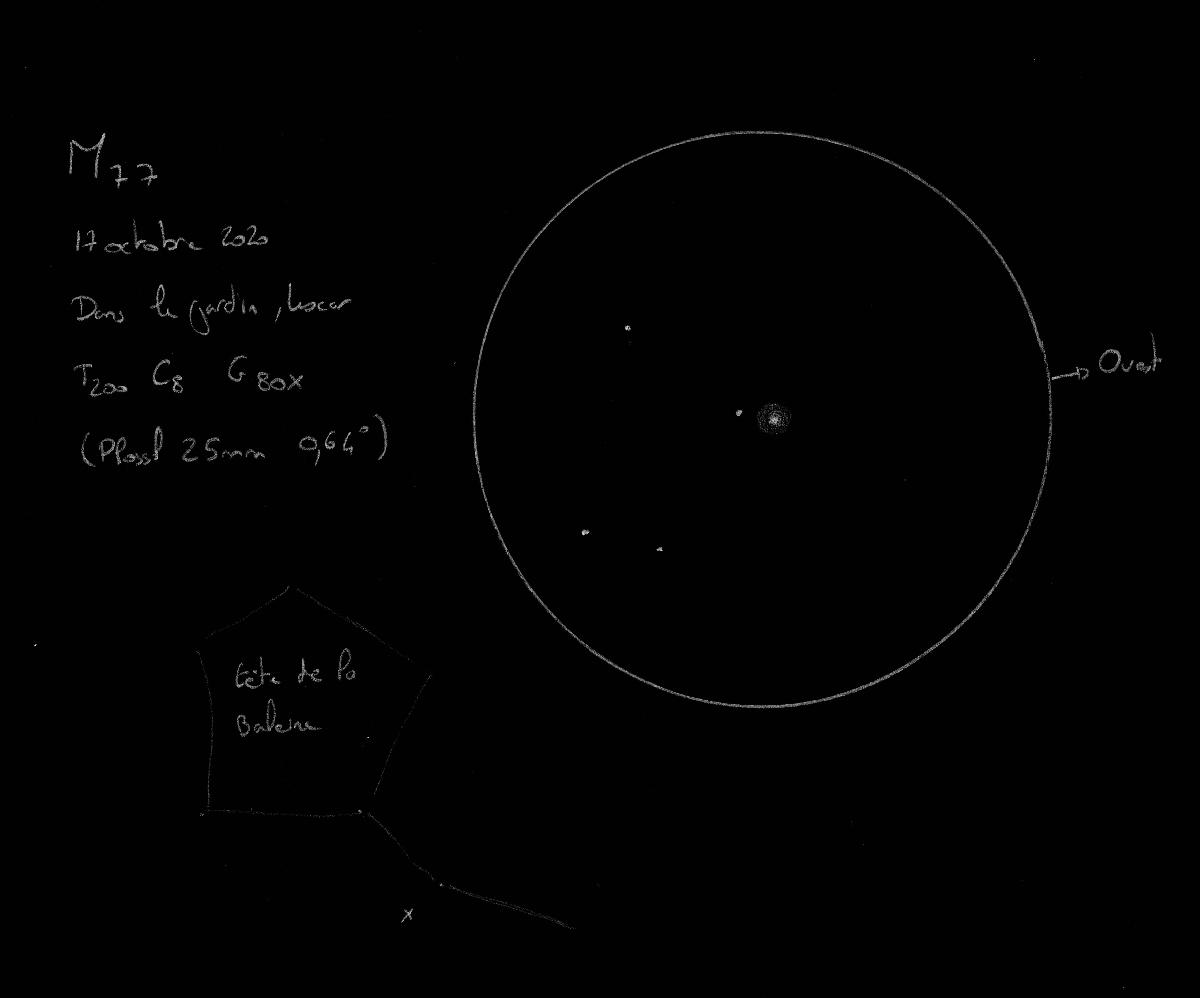 M77
17 octobre 2020
Dans le jardin, Lescar
T200 C8 G80x
(Plossl 25mm 0,64°)
Ouest
tête de la
Baleine
x